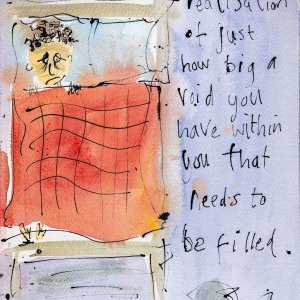 realisation
of just
how big a
void you
have within
you that
needs to
be filled.